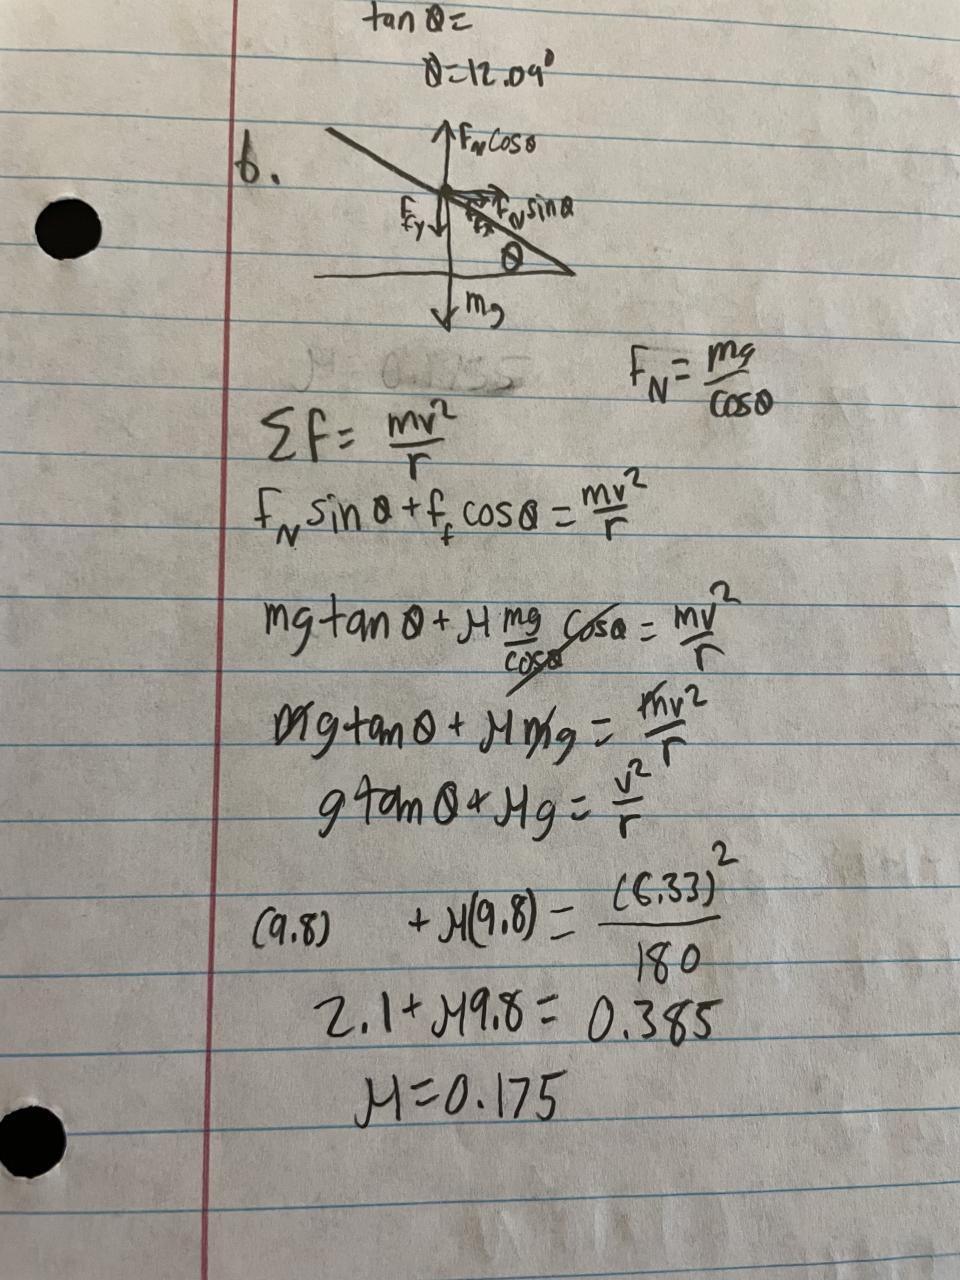 tan θ=
θ=12.09°
b.
F_N cosθ
F_fy
F_fx
F_N sinθ
θ
mg
F_N = mg/cosθ
ΣF= mv²/r
F_N sin θ + f_f cosθ = mv²/r
mg tan θ + μ mg/cosθ cosθ = mv²/r
mg tan θ + μ mg = mv²/r
g tan θ + μg = v²/r
(9.8) + μ(9.8) = (6.33)²/180
2.1 + μ9.8 = 0.385
μ=0.175